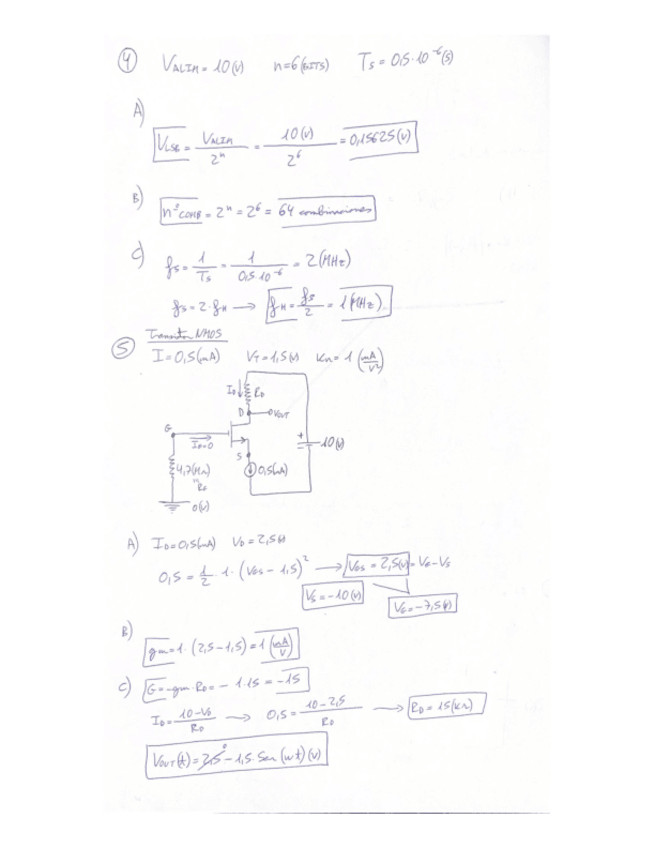 4 VALIM = 10 (V) n = 6 (BITS) Ts = 0,5·10^-6 (s)
A)
VLSB = VALIM / 2^n = 10 (V) / 2^6 = 0,15625 (V)
B) nº COMB = 2^n = 2^6 = 64 combinaciones
C) fs = 1 / Ts = 1 / 0,5·10^-6 = 2 (MHz)
fs = 2·fM → fM = fs / 2 = 1 (MHz)
5 Transistor NMOS
I = 0,5 (mA) VT = 1,5 (V) Kn = 1 (mA / V²)
ID RD
D VOUT
G
IG = 0
+ 10 (V)
S
4,7 (MΩ) 0,5 (mA)
RG
0 (V)
A) ID = 0,5 (mA) VD = 2,5 (V)
0,5 = 1/2 · 1 · (VGS - 1,5)² → VGS = 2,5 (V) = VG - VS
VS = -10 (V)
VG = -7,5 (V)
B)
gm = 1 · (2,5 - 1,5) = 1 (mA / V)
C) G = -gm · RD = - 1·15 = -15
ID = 10 - VD / RD → 0,5 = 10 - 2,5 / RD → RD = 15 (kΩ)
VOUT (t) = 2,5 - 1,5 · Sen (wt) (V)